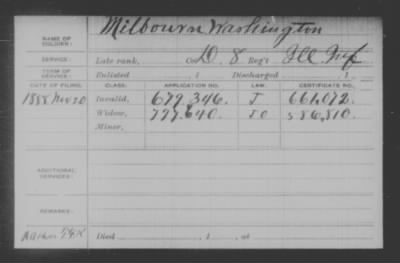 NAME OF SOLDIER: Milbourn Washington
SERVICE: Late rank, Co. D. 8 Reg't Ill Inf
TERM OF SERVICE: Enlisted , 1 Discharged , 1
DATE OF FILING. CLASS. APPLICATION NO. LAW. CERTIFICATE NO.
1888 Nov 20 Invalid, 679.346. J 661,072.
Widow, 797.640. 586,810.
Minor,
ADDITIONAL SERVICES:
REMARKS:
Died , 1 , at